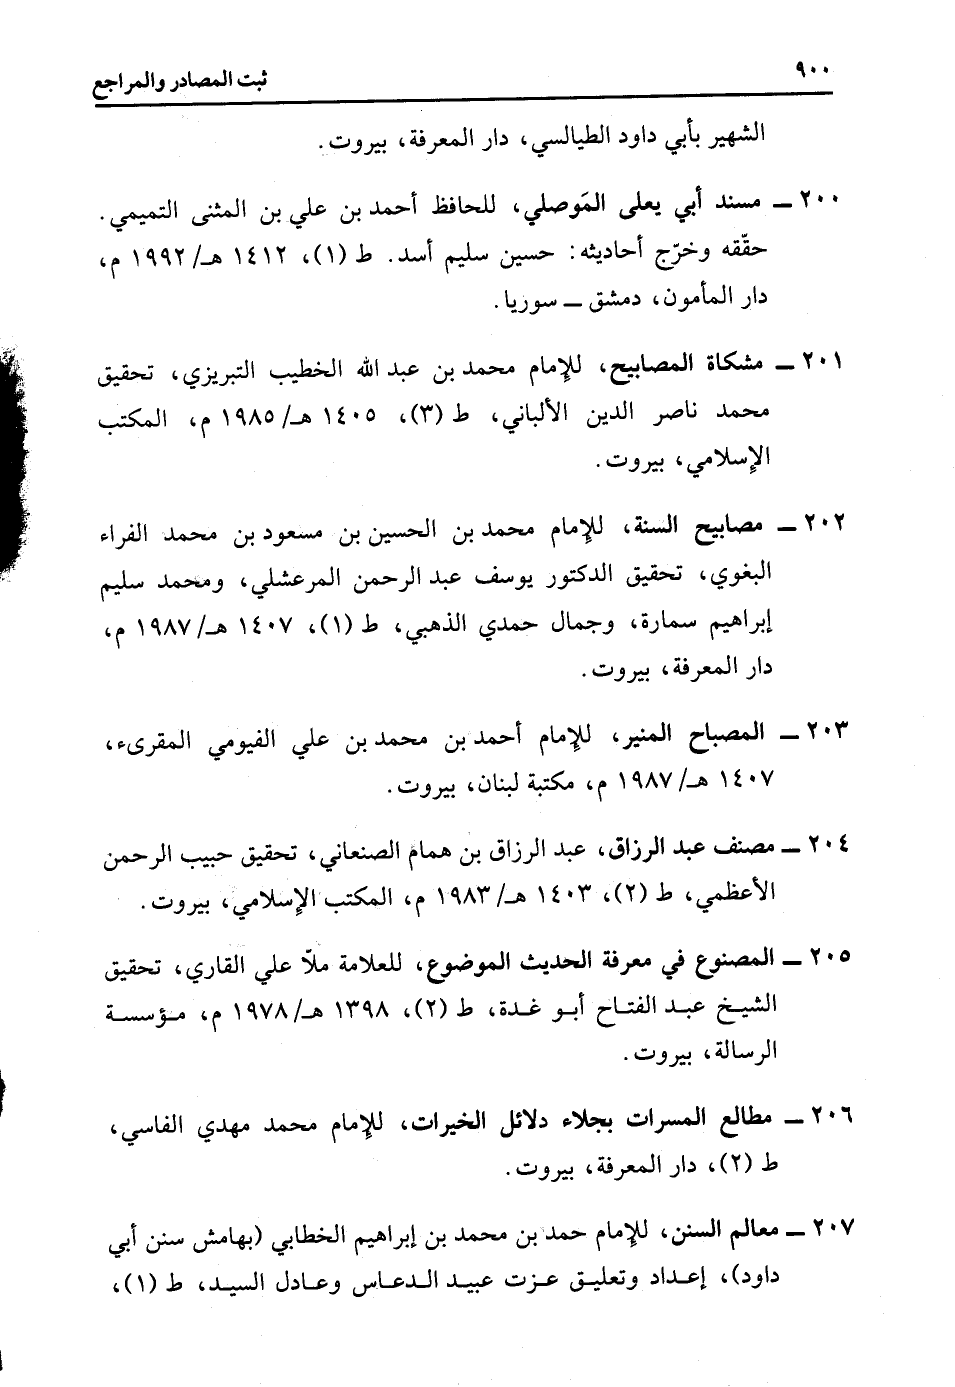 ٩٠٠
ثبت المصادر والمراجع
الشهير بأبي داود الطيالسي، دار المعرفة، بيروت.
٢٠٠ ــ مسند أبي يعلى المَوصلي، للحافظ أحمد بن علي بن المثنى التميمي.
حقّقه وخرّج أحاديثه: حسين سليم أسد. ط (١)، ١٤١٢ هـ/ ١٩٩٢ م،
دار المأمون، دمشق ــ سوريا.
٢٠١ ــ مشكاة المصابيح، للإمام محمد بن عبد الله الخطيب التبريزي، تحقيق
محمد ناصر الدين الألباني، ط (٣)، ١٤٠٥ هـ/ ١٩٨٥ م، المكتب
الإسلامي، بيروت.
٢٠٢ ــ مصابيح السنة، للإمام محمد بن الحسين بن مسعود بن محمد الفراء
البغوي، تحقيق الدكتور يوسف عبد الرحمن المرعشلي، ومحمد سليم
إبراهيم سمارة، وجمال حمدي الذهبي، ط (١)، ١٤٠٧ هـ/ ١٩٨٧ م،
دار المعرفة، بيروت.
٢٠٣ ــ المصباح المنير، للإمام أحمد بن محمد بن علي الفيومي المقرىء،
١٤٠٧ هـ/ ١٩٨٧ م، مكتبة لبنان، بيروت.
٢٠٤ ــ مصنف عبد الرزاق، عبد الرزاق بن همام الصنعاني، تحقيق حبيب الرحمن
الأعظمي، ط (٢)، ١٤٠٣ هـ/ ١٩٨٣ م، المكتب الإسلامي، بيروت.
٢٠٥ ــ المصنوع في معرفة الحديث الموضوع، للعلامة ملاّ علي القاري، تحقيق
الشيخ عبد الفتاح أبو غدة، ط (٢)، ١٣٩٨ هـ/ ١٩٧٨ م، مؤسسة
الرسالة، بيروت.
٢٠٦ ــ مطالع المسرات بجلاء دلائل الخيرات، للإمام محمد مهدي الفاسي،
ط (٢)، دار المعرفة، بيروت.
٢٠٧ ــ معالم السنن، للإمام حمد بن محمد بن إبراهيم الخطابي (بهامش سنن أبي
داود)، إعداد وتعليق عزت عبيد الدعاس وعادل السيد، ط (١)،